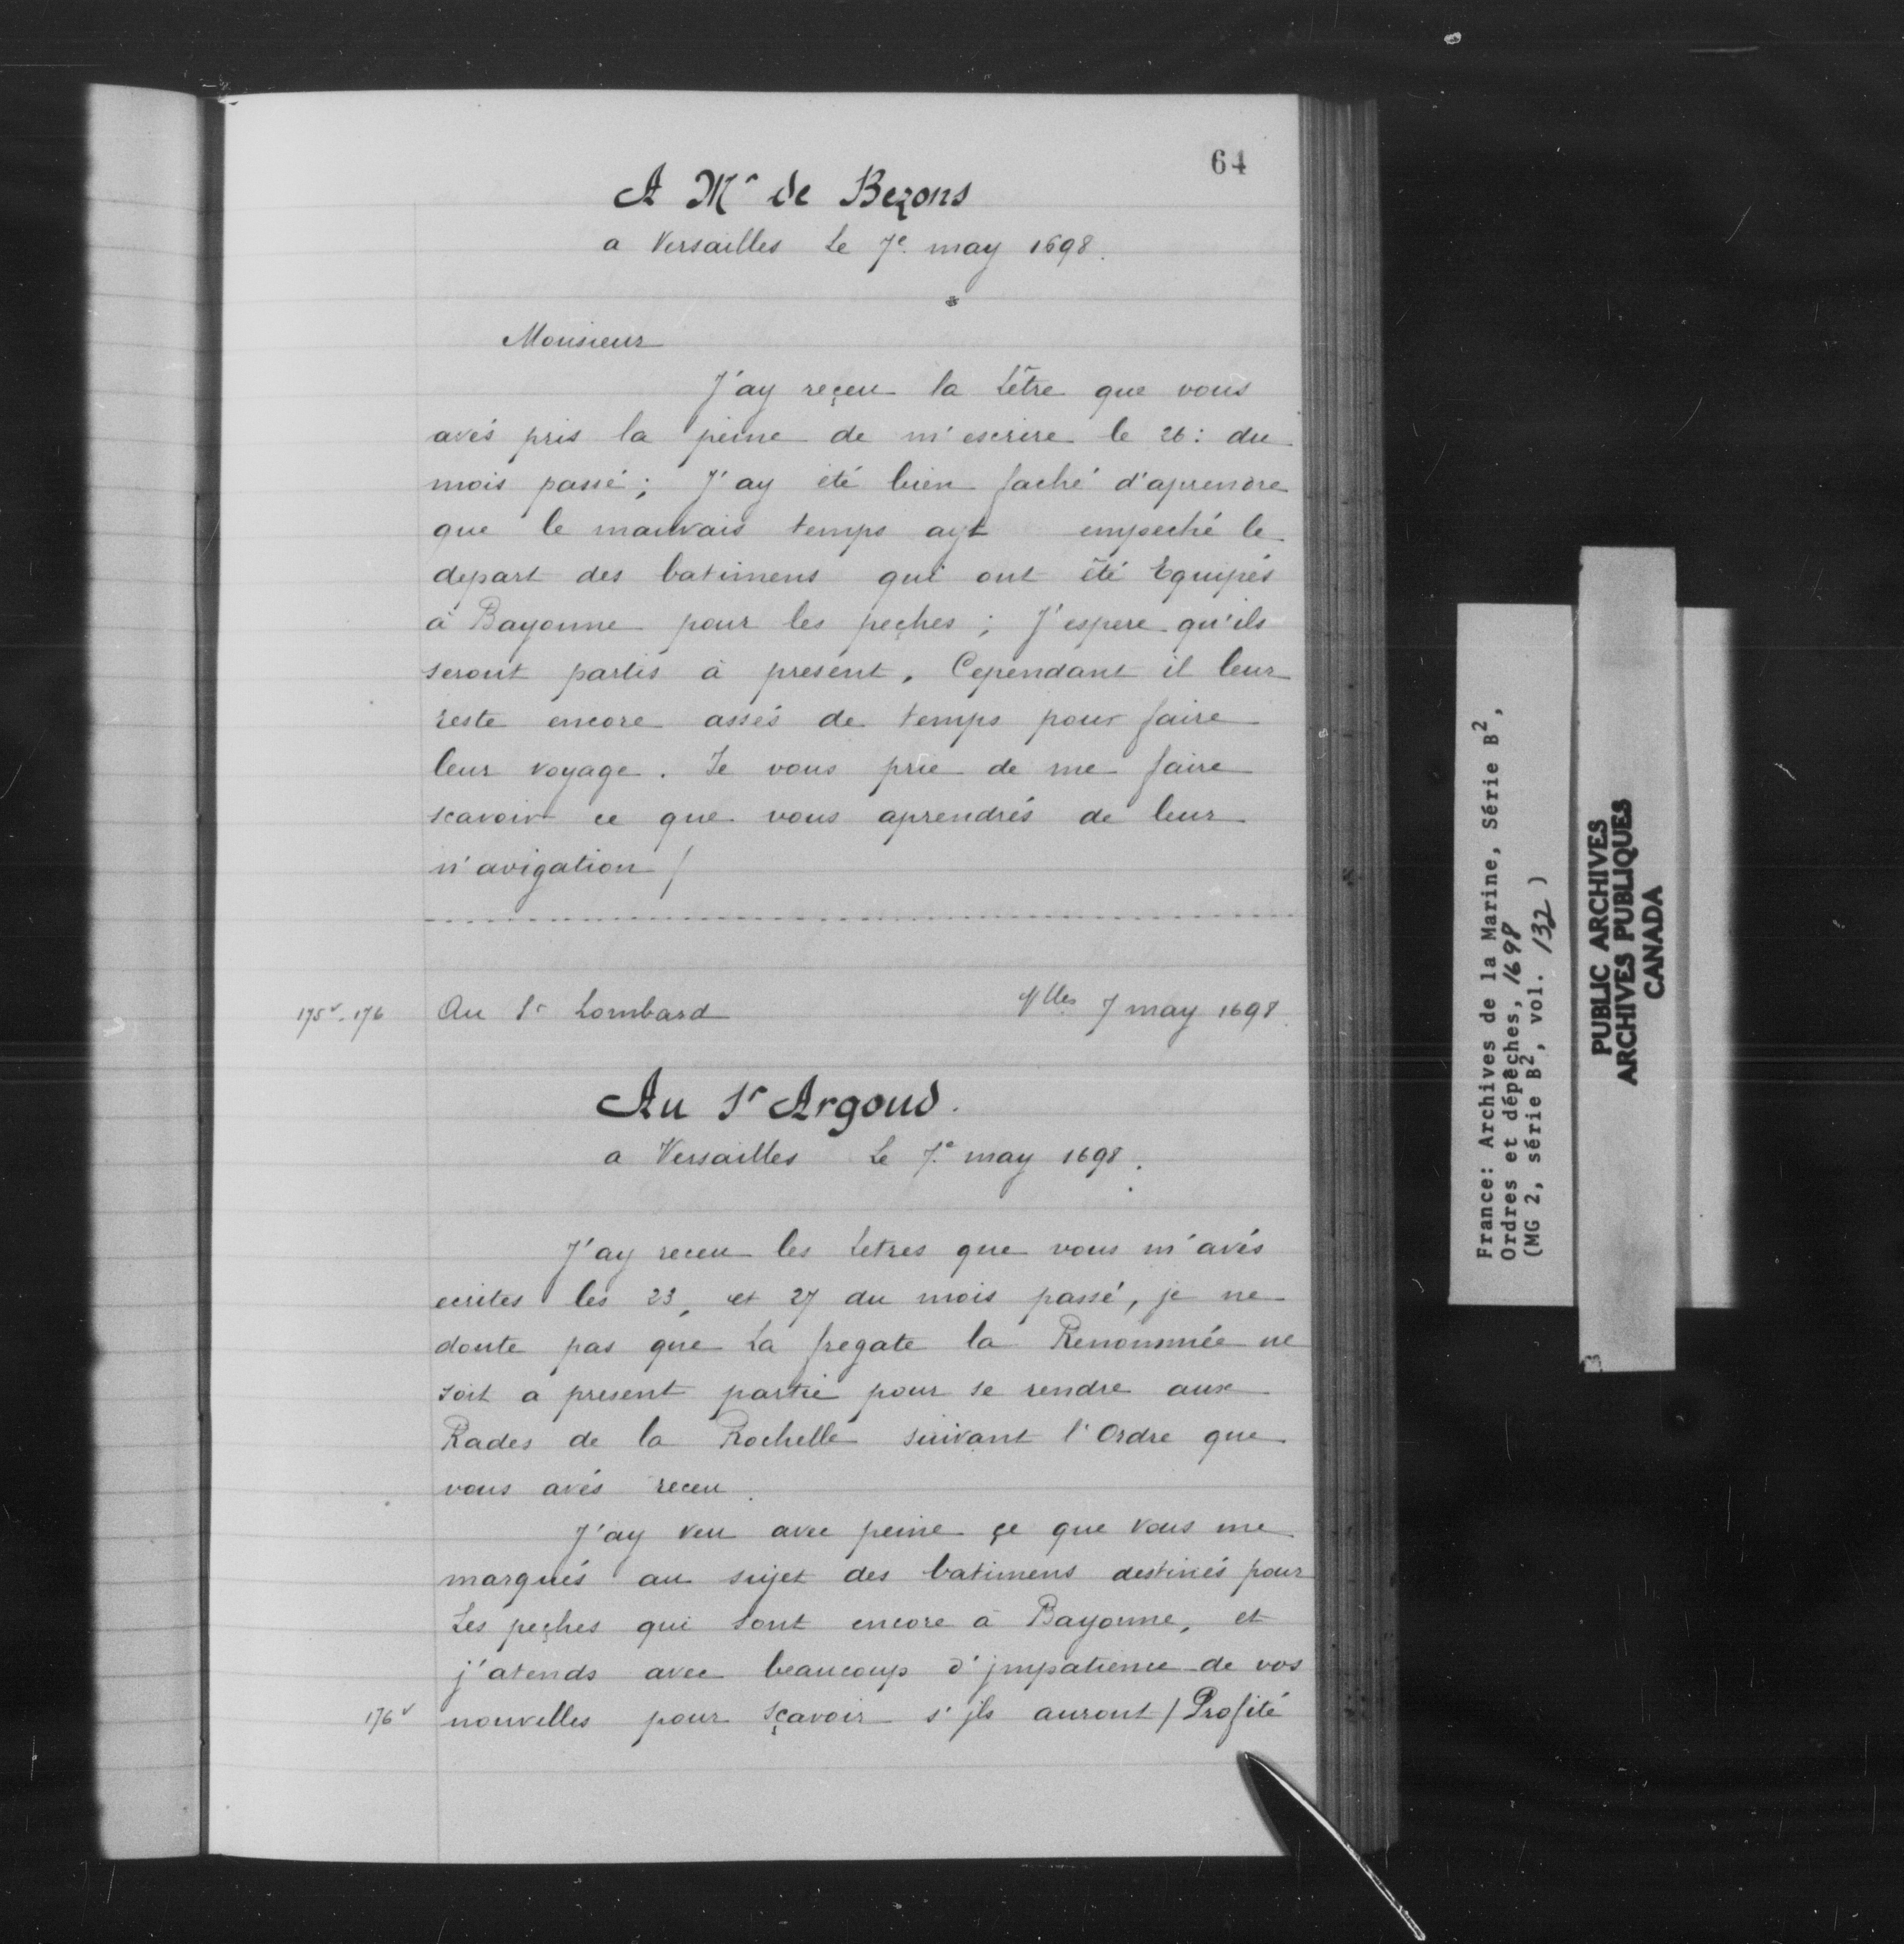 64
A Mr de Bezons
a Versailles Le 7e may 1698.
Monsieur
J'ay reçeu la Lêtre que vous
avés pris la peine de m'escrire le 26: du
mois passé; J'ay été bien faché d'aprendre
que le mauvais temps ayt empeché le
depart des batimens qui ont êté Equipés
à Bayonne pour les peçhes; J'espere qu'ils
seront partis à present. Cependant il leur
reste encore assés de temps pour faire
leur voyage. Je vous prie de me faire
scavoir ce que vous aprendrés de leur
n'avigation /
175v-176 Au Sr Lombard Vlles 7 may 1698.
Au Sr Argoud.
a Versailles Le 7e may 1698.
J'ay receu les Letres que vous m'avés
ecrites les 23, et 27 du mois passé, je ne
doute pas que La fregate la Renommée ne
soit a present partie pour se rendre aux
Rades de la Rochelle suivant l'Ordre que
vous avés receu.
J'ay veu avec peine çe que vous me
marqués au sujet des batimens destinés pour
Les peçhes qui sont encore à Bayonne, et
j'atends avec beaucoup d'jmpatience de vos
176v nouvelles pour sçavoir s'jls auront / Profité
France: Archives de la Marine, Série B2,
Ordres et dépêches, 1698
(MG 2, série B2, vol. 132)
PUBLIC ARCHIVES
ARCHIVES PUBLIQUES
CANADA